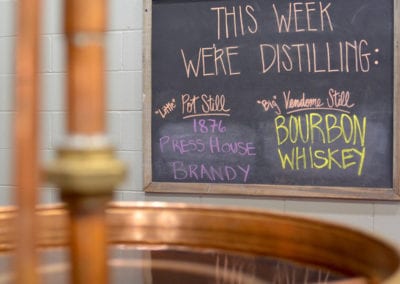 THIS WEEK
WE'RE DISTILLING:
"Little" Pot Still
1876
PRESS HOUSE
BRANDY
"Big" Vendome Still
BOURBON
WHISKEY